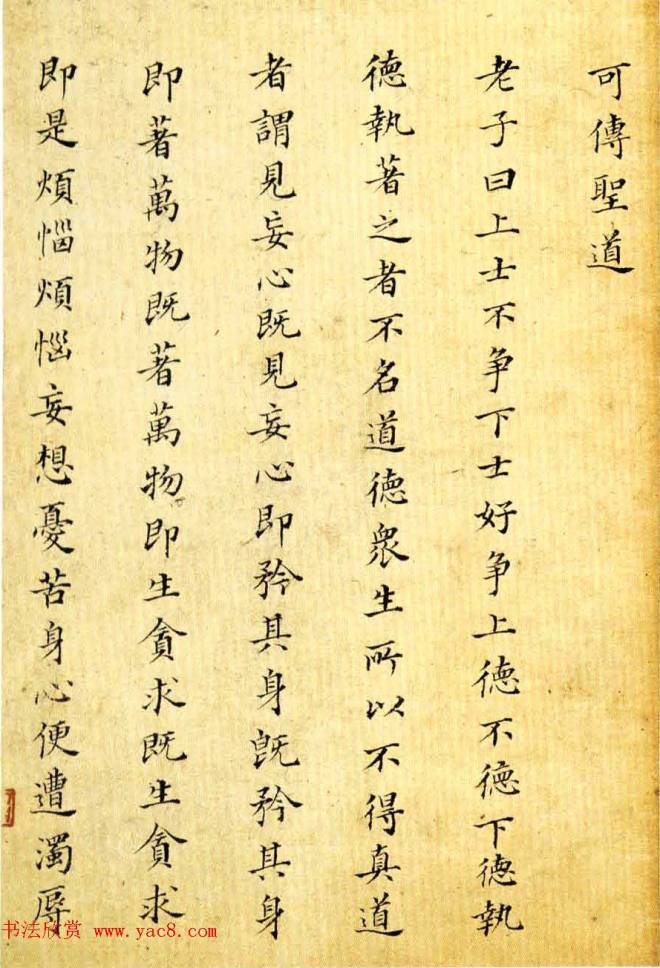 可傳聖道
老子曰上士不争下士好争上德不德下德執
德執著之者不名道德衆生所以不得真道
者謂見妄心既見妄心即矜其身既矜其身
即著萬物既著萬物即生貪求既生貪求
即是煩惱煩惱妄想憂苦身心便遭濁辱
书法欣赏 www.yac8.com